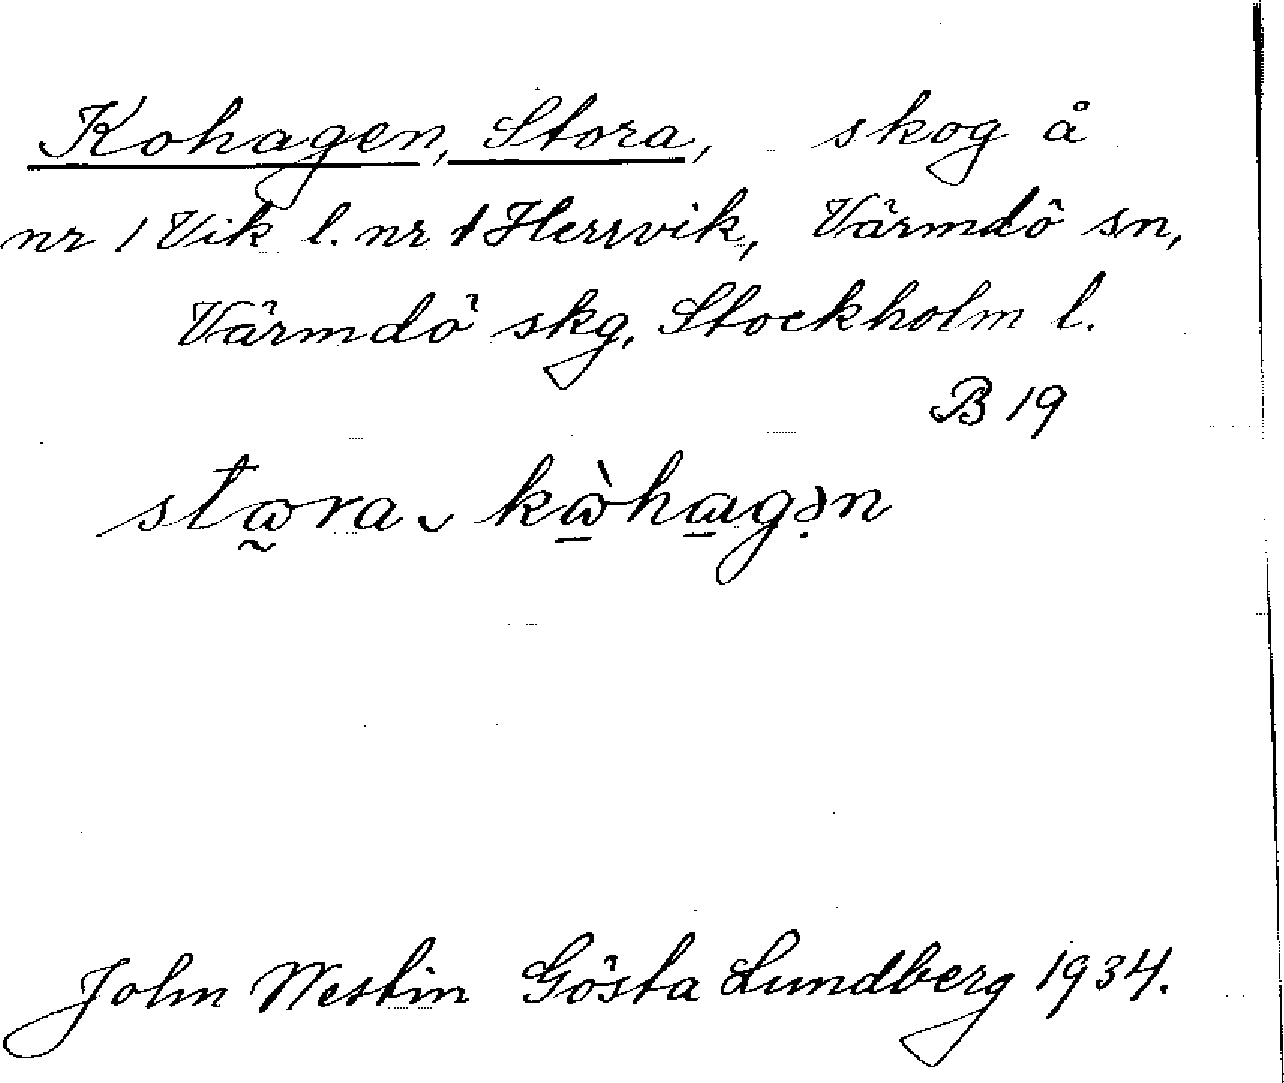 Kohagen, Stora, skog å
nr 1 Vik l. nr 1 Herrvik, Värmdö sn,
Värmdö skg, Stockholm l.
B 19
John Westin Gösta Lundberg 1934.